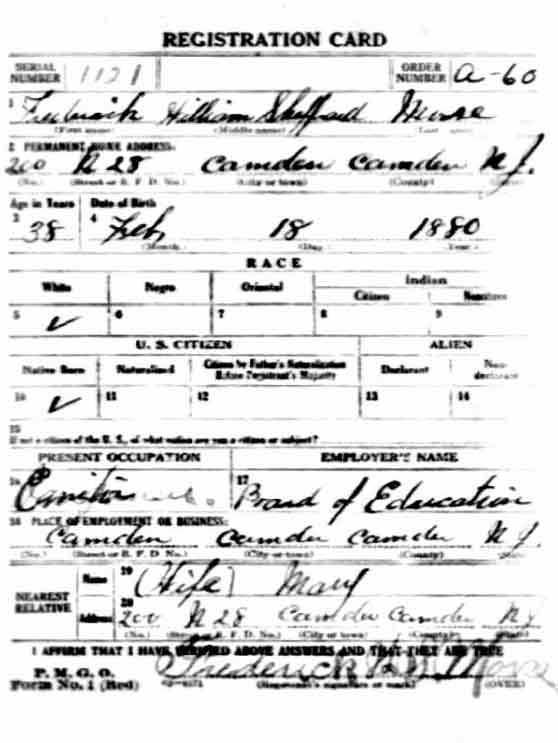 REGISTRATION CARD
SERIAL NUMBER 1121 ORDER NUMBER A-60
1 Frederick William Sheppard Morse
(First name) (Middle name) (Last name)
2 PERMANENT HOME ADDRESS:
200 N 28 Camden Camden N.J.
(No.) (Street or R. F. D. No.) (City or town) (County) (State)
Age in Years Date of Birth
3 38 4 Feb 18 1880
(Month.) (Day.) (Year.)
RACE
White Negro Oriental Indian
Citizen Noncitizen
5 ✓ 6 7 8 9
U. S. CITIZEN ALIEN
Native Born Naturalized Citizen by Father's Naturalization Before Registrant's Majority Declarant Non-declarant
10 ✓ 11 12 13 14
15
If not a citizen of the U. S., of what nation are you a citizen or subject?
PRESENT OCCUPATION EMPLOYER'S NAME
16 17 Board of Education
18 PLACE OF EMPLOYMENT OR BUSINESS:
Camden Camden Camden N.J.
(No.) (Street or R. F. D. No.) (City or town) (County) (State)
NEAREST RELATIVE
Name 19 (Wife) Mary
Address 20 200 N 28 Camden Camden N J
(No.) (Street or R. F. D. No.) (City or town) (County) (State)
I AFFIRM THAT I HAVE VERIFIED ABOVE ANSWERS AND THAT THEY ARE TRUE
P. M. G. O.
Form No. 1 (Red) Frederick Wm Morse
(Registrant's signature or mark) (OVER)